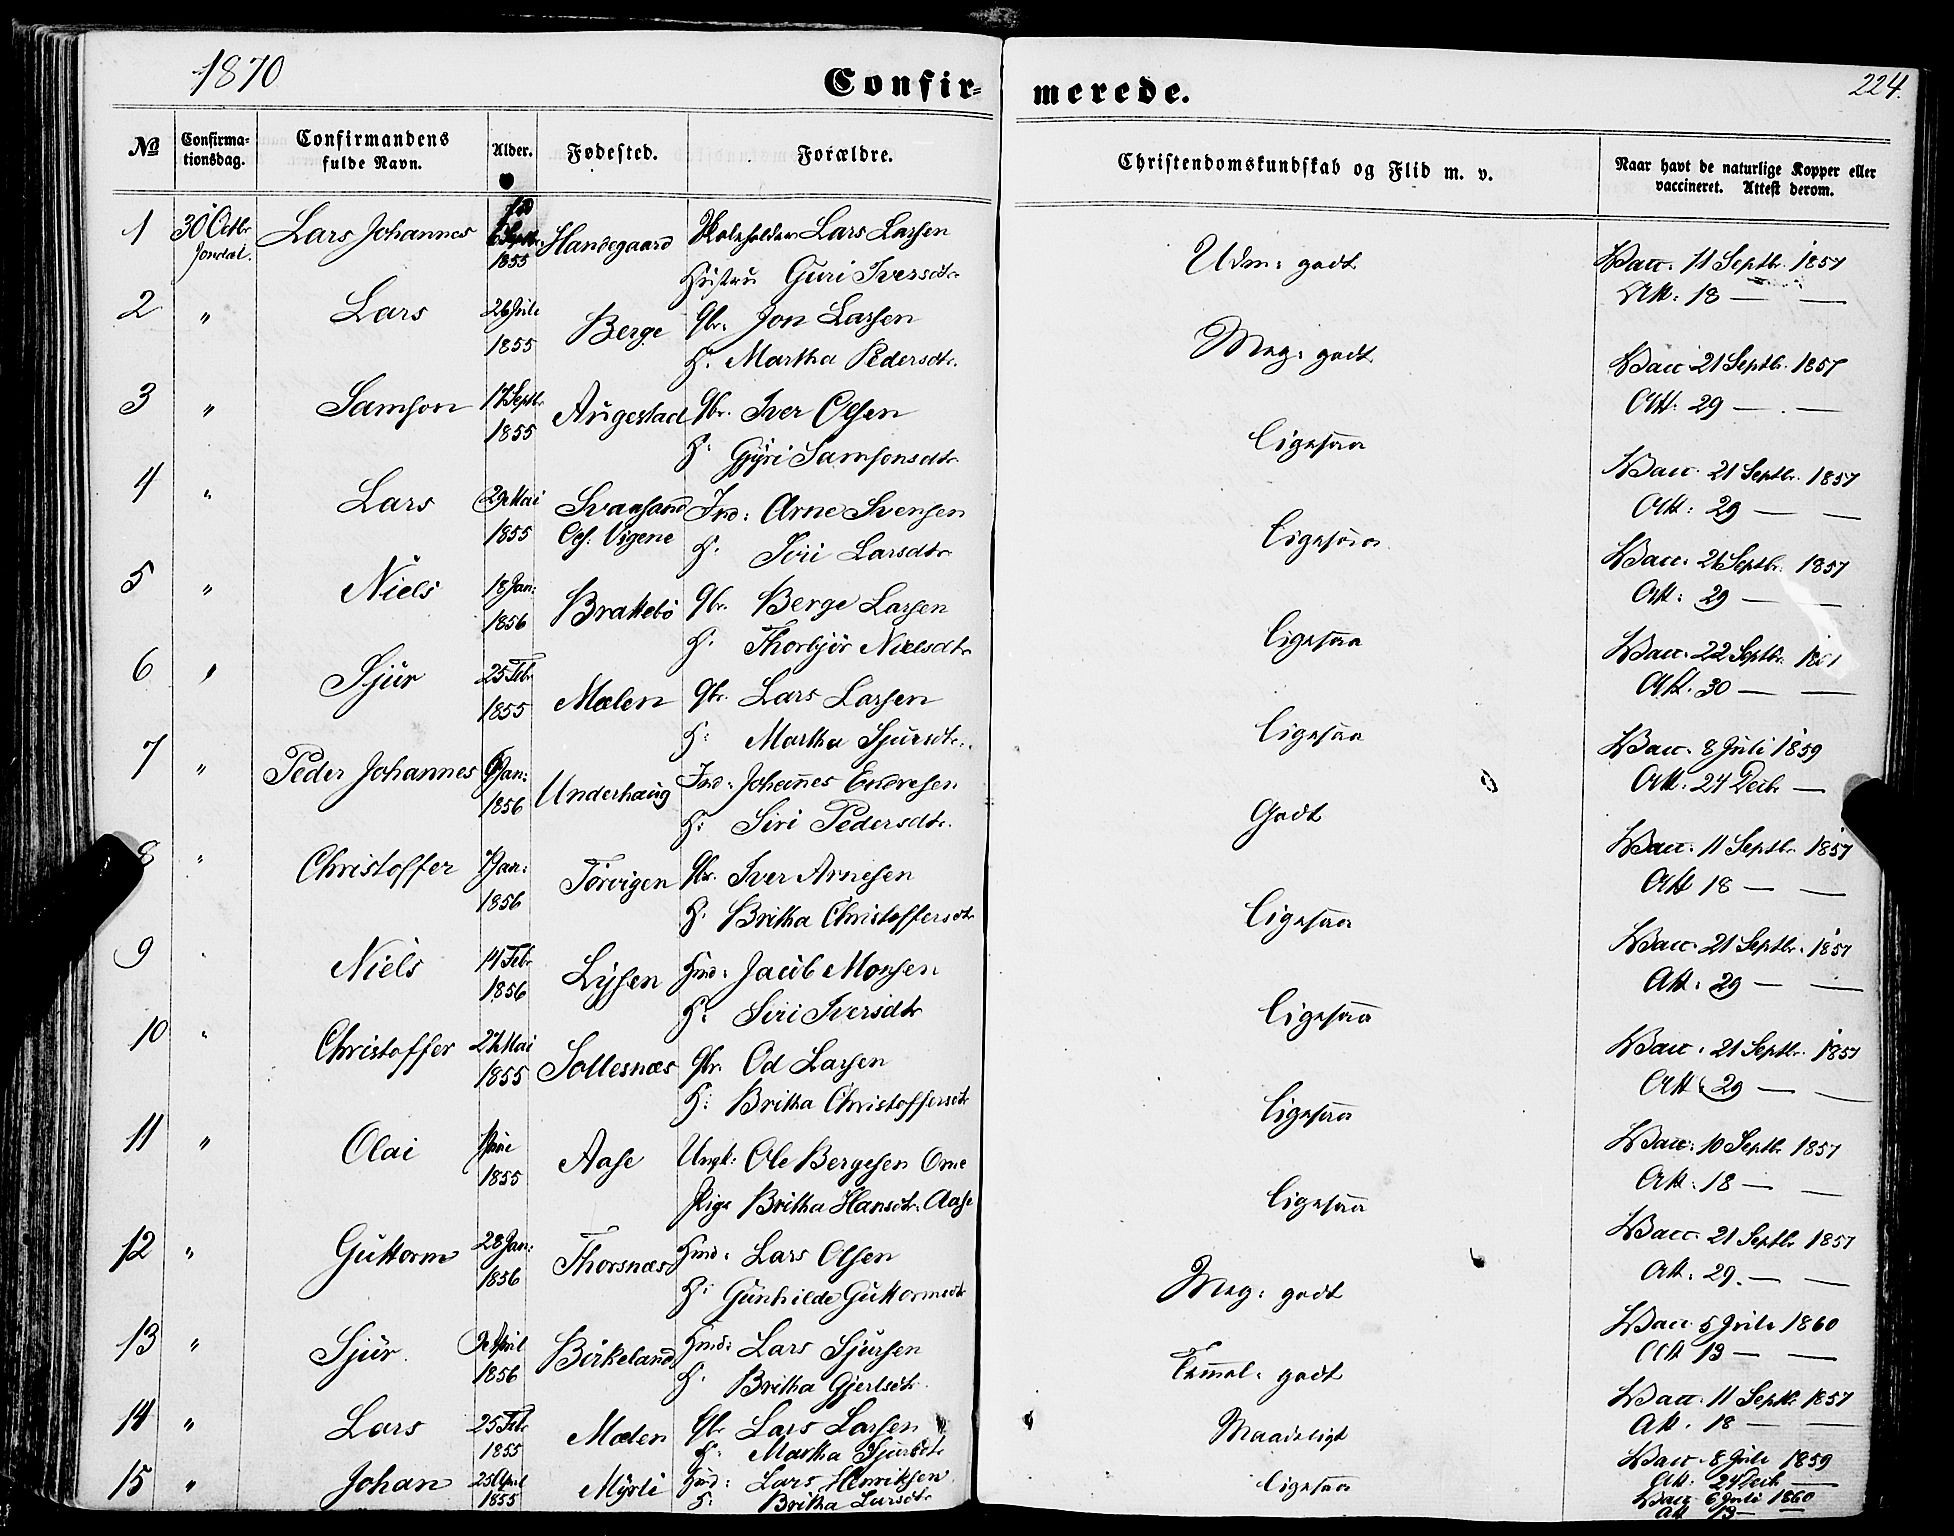 1870
Confirmerede.
224.
№ Confirmationsdag. Confirmandens fulde Navn. Alder. Fødested. Forældre. Christendomskundskab og Flid m. v. Naar havt de naturlige Kopper eller vaccineret. Attest derom.
1 30 Octbr Jondal. Lars Johannes 1855 Handegaard Skoleholder Lars Larsen Udm: godt Vacc: 11 Septbr. 1857
Hustru Guri Iversdtr Att: 18 — —
2 " Lars 26 Juli 1855 Berge Gbr. Jon Larsen Meg: godt Vacc 21 Septbr. 1857
H. Martha Pedersdtr. Att: 29 — —
3 " Samson 17 Septbr 1855 Augestad Gbr. Iver Olsen Ligesaa Vacc. 21 Septbr. 1857
H: Gjyri Samsonsdtr Att: 29 — —
4 " Lars 29 Mai 1855 Svasand Ind: Arne Svensen Ligesaa Vacc: 21 Septbr. 1857
Vigene H. Siri Larsdtr Att: 29 — —
5 " Niels 18 Jan: 1856 Brakebö Gbr. Berge Larsen Ligesaa Vacc. 22 Septbr.
H. Thorbjør Nielsdtr Att. 30 — —
6 " Sjur 25 Febr 1855 Mælen Gbr. Lars Larsen Ligesaa Vacc. 8 Juli 1859
H: Martha Sjursdtr. Att: 24 Decbr —
7 " Peder Johannes Jan: 1856 Underhaug Ind: Johannes Endresen Godt Vacc: 11 Septbr. 1857
H: Siri Pedersdtr. Att 18 — —
8 " Christoffer Jan: 1856 Törvigen Gbr. Iver Arnesen Ligesaa Vacc. 21 Septbr. 1857
H. Britha Christoffersdtr Att: 29 — —
9 " Niels 14 Febr 1856 Lysen Hmd: Jacob Monsen Ligesaa Vacc. 21 Septbr. 1857
H. Siri Iversdtr Att. 29 — —
10 " Christoffer 27 Mai 1855 Sollesnæs Gbr. Od Larsen Ligesaa Vacc. 10 Septbr 1857
H: Britha Christoffersdtr Att. 18 — —
11 " Olai 1855 Aase Ungk: Ole Bergesen Ome Ligesaa Vacc. 21 Septbr 1857
Pige Britha Hansdtr. Aase Att. 29. — —
12 " Guttorm 28 Jan: 1856 Thorsnæs Hmd: Lars Olsen Meg: godt Vacc 5 Juli 1860
H: Gunhilde Guttormsdtr Att 13 — —
13 " Sjur. April 1856 Birkeland Hmd: Lars Sjursen Temmel: godt Vacc. 11 Septbr 1857
H. Britha Gjertsdtr. Att. 18 — —
14 " Lars 25 Febr 1855 Mælen Gbr Lars Larsen Maadeligt Vacc. 8 Juli 1859
H. Martha Sjursdtr Att. 24 Decb —
15 " Johan 25 April 1855 Myrli Hmd: Lars Henriksen Ligesaa Vacc 6 Juli 1860
H: Britha Larsdtr. Att 13 — —